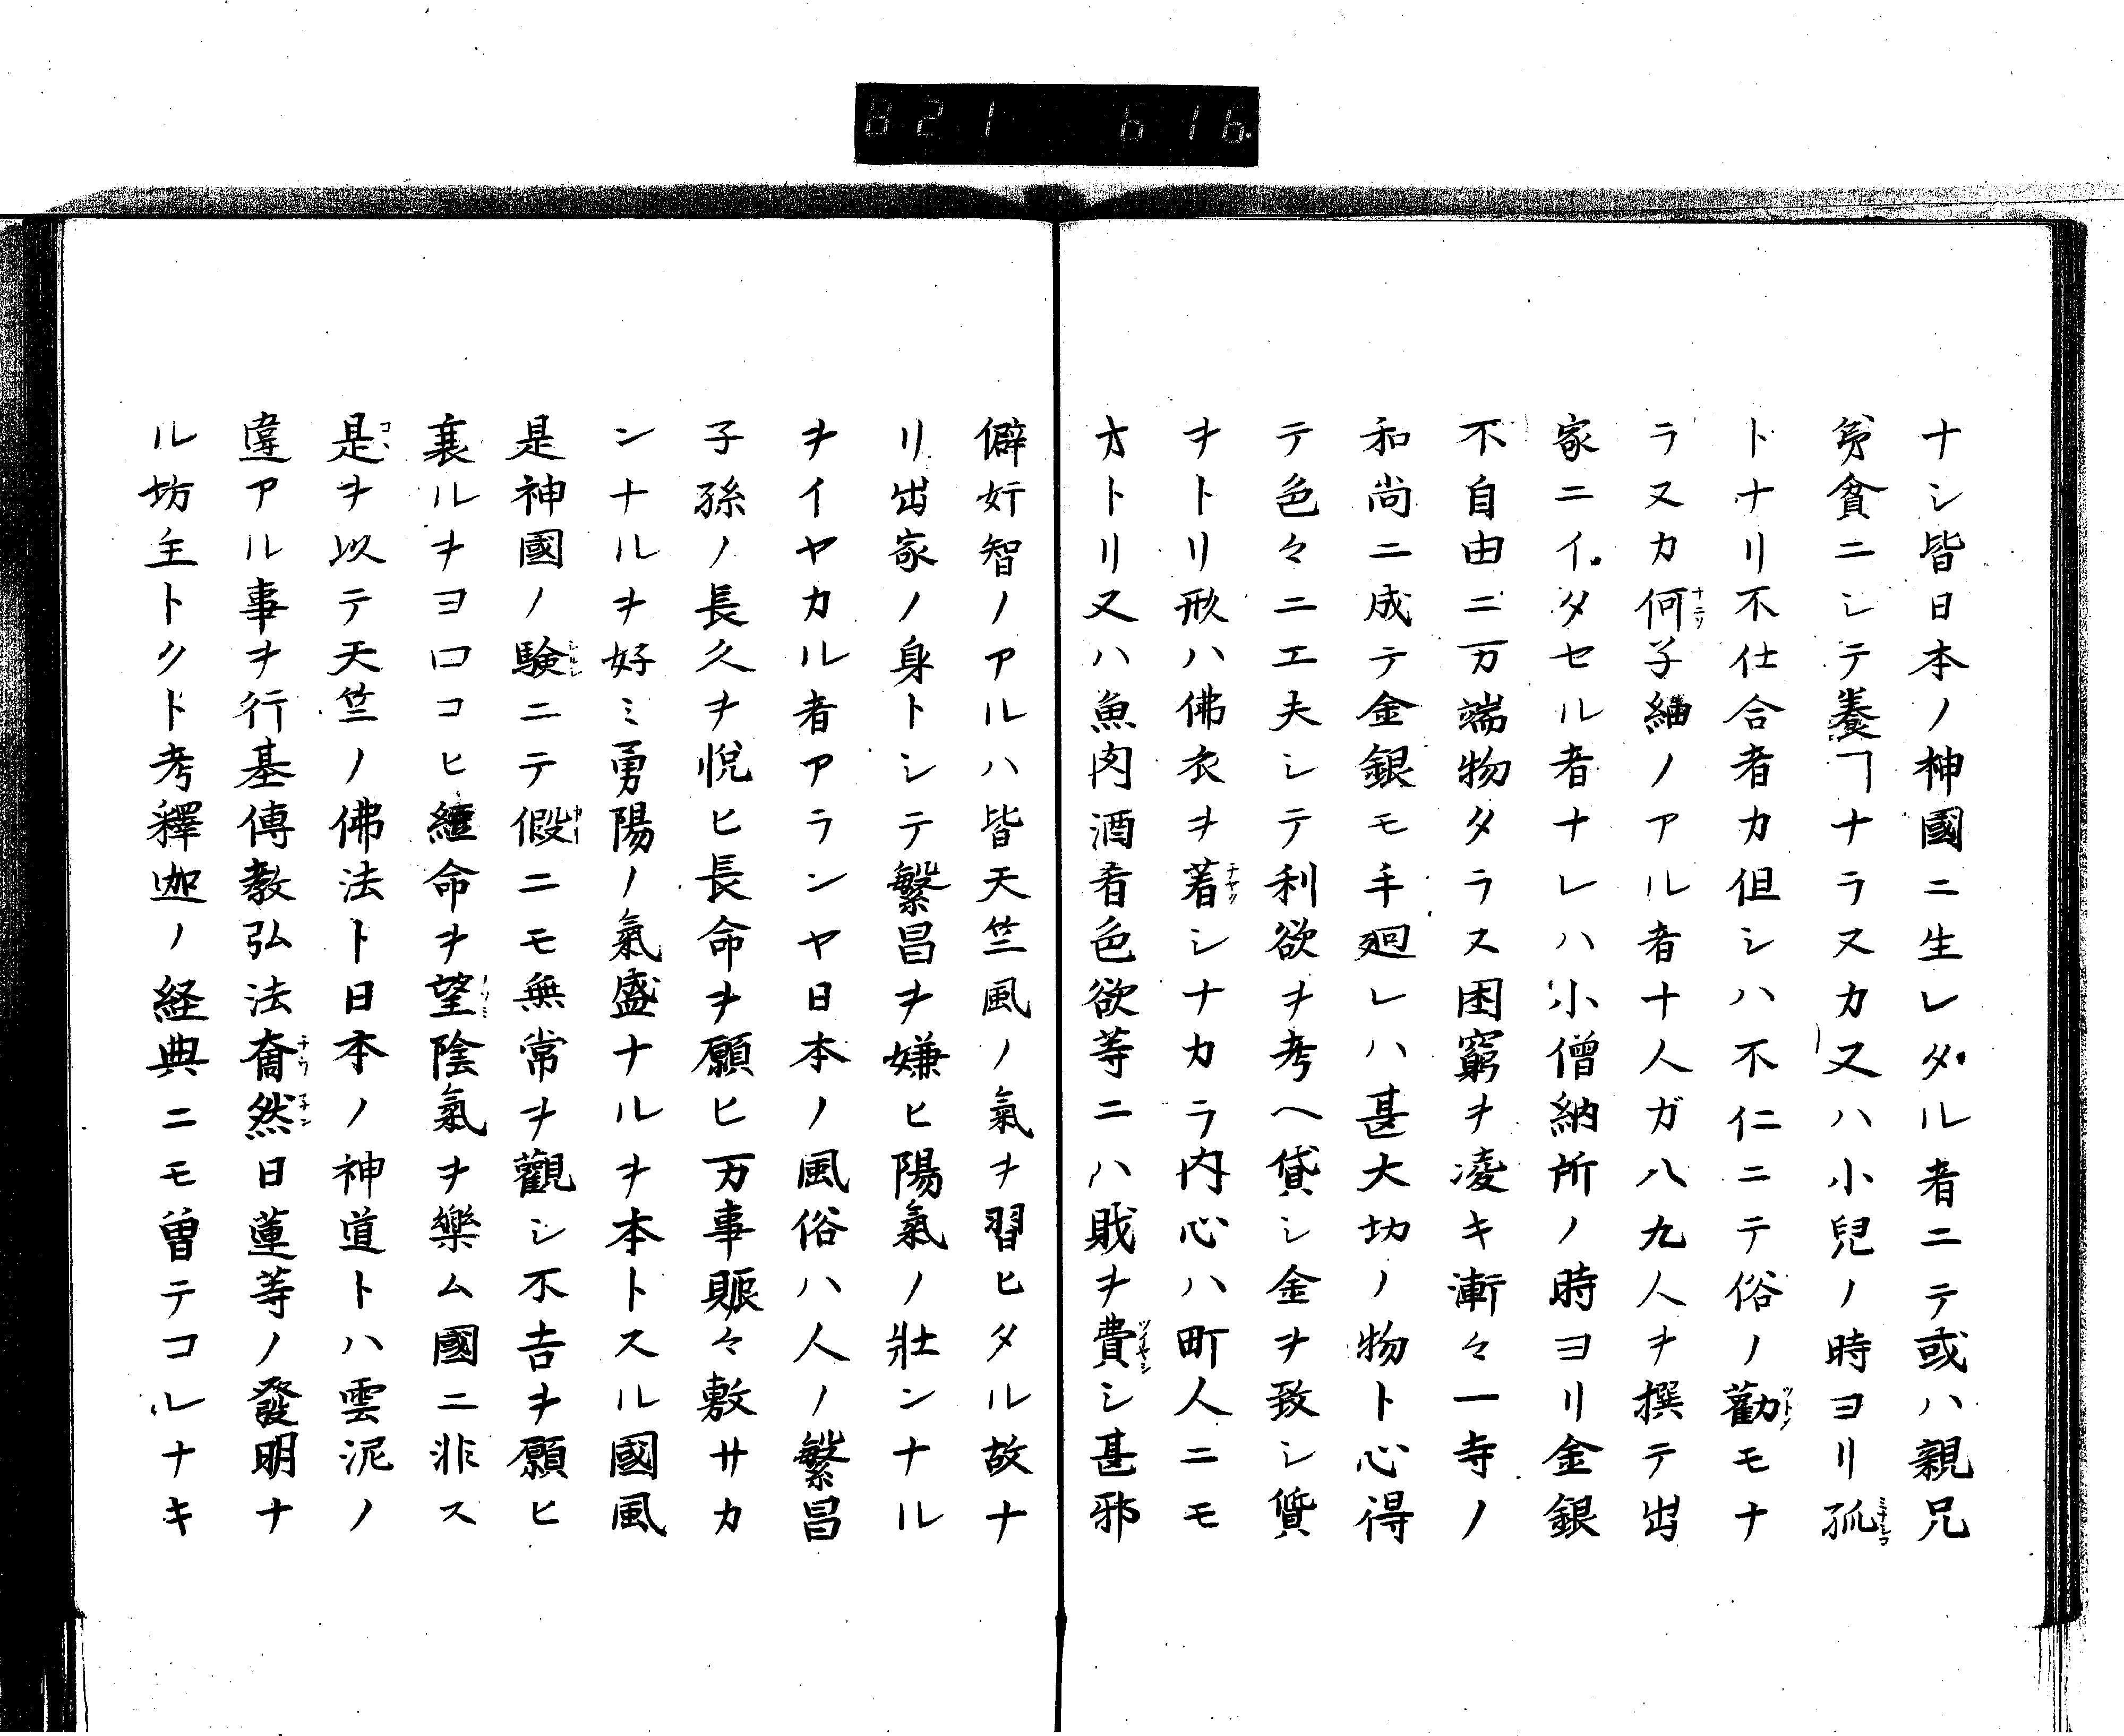 821 616
ナシ皆日本ノ神國ニ生レタル者ニテ或ハ親兄
弟貧ニシテ養ヿナラヌカ又ハ小兒ノ時ヨリ孤
トナリ不仕合者カ但シハ不仁ニテ俗ノ勸モナ
ラヌカ何子細ノアル者十人ガ八九人ヲ撰テ出
家ニイタセル者ナレハ小僧納所ノ時ヨリ金銀
不自由ニ万端物タラス困窮ヲ凌キ漸々一寺ノ
和尚ニ成テ金銀モ手廻レハ甚大切ノ物ト心得
テ色々ニ工夫シテ利欲ヲ考ヘ貸シ金ヲ致シ質
ヲトリ形ハ佛衣ヲ著シナカラ内心ハ町人ニモ
オトリ又ハ魚肉酒肴色欲等ニハ戝ヲ費シ甚邪
僻奸智ノアルハ皆天竺風ノ氣ヲ習ヒタル故ナ
リ出家ノ身トシテ繁昌ヲ嫌ヒ陽氣ノ壯ンナル
ヲイヤカル者アランヤ日本ノ風俗ハ人ノ繁昌
子孫ノ長久ヲ悦ヒ長命ヲ願ヒ万事賑々敷サカ
ンナルヲ好ミ勇陽ノ氣盛ナルヲ本トスル國風
是神國ノ験ニテ假ニモ無常ヲ觀シ不吉ヲ願ヒ
衰ルヲヨロコヒ縮命ヲ望陰氣ヲ樂ム國ニ非ス
是ヲ以テ天竺ノ佛法ト日本ノ神道トハ雲泥ノ
違アル事ヲ行基傳教弘法奝然日蓮等ノ發明ナ
ル坊主トクト考釋迦ノ経典ニモ曽テコレナキ